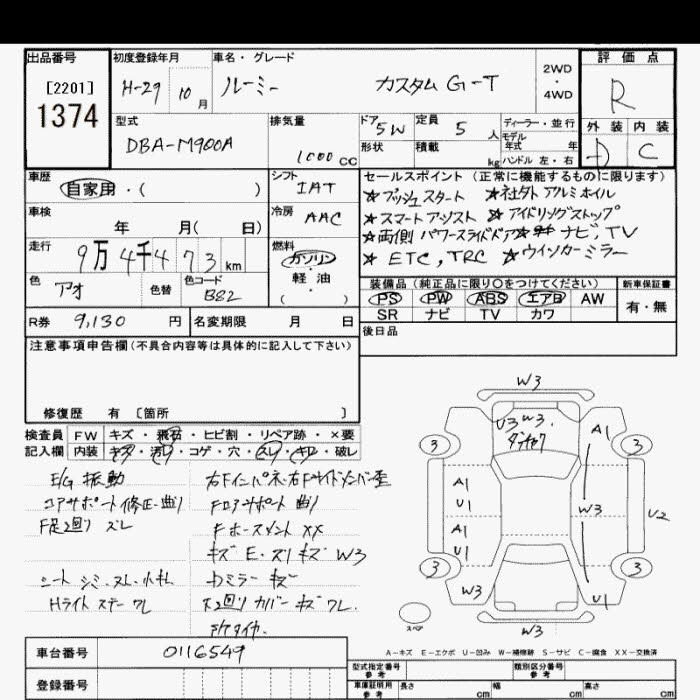 出品番号 初度登録年月 車名・グレード 2WD・4WD 評価点
[2201] H-29 10月 ルーミー カスタム G-T R
1374
型式 排気量 ドア 定員 ディーラー・並行 外装 内装
DBA-M900A 1000cc 5W 5人 モデル年式 年 D C
形状 積載 kg ハンドル 左・右
車歴 シフト セールスポイント(正常に機能するものに限ります)
自家用・( ) IAT ☆プッシュスタート ☆社外アルミホイル
車検 冷房 ☆スマートアシスト ☆アイドリングストップ
年 月( 日) AAC ☆両側パワースライドドア☆ナビ,TV
走行 燃料 ☆ETC,TRC ☆ウインカーミラー
9万4千473km ガソリン
軽油
( )
色 色替 色コード 装備品(純正品に限り○をつけてください) 新車保証書
アオ B82 PS PW ABS エアB AW 有・無
SR ナビ TV カワ
R券 9,130円 名変期限 月 日 後日品
注意事項申告欄(不具合内容等は具体的に記入して下さい)
修復歴 有 [箇所 ]
検査員 FW キズ・飛石・ヒビ割・リペア跡・×要
記入欄 内装 キズ・汚レ・コゲ・穴・スレ・キレ・破レ
E/G 振動
コアサポート修正・曲り
F足廻り ズレ
シート シミ・スレ・小キレ
Hライト ステー ワレ
右Fインパネ・右Fサイドメンバー歪
Fロアサポート 曲り
Fホースメント XX
キズ E・スリキズ W3
Dミラー キズ
下廻り カバー キズ ワレ.
W3
U3 W3.
A1
3 3
A1 U1
W3
U2
A1 U1
3 3
W3 U1
スペア
W3
A-キズ E-エクボ U-凹み W-補修跡 S-サビ C-腐食 XX-交換済
車台番号 0116549
登録番号
型式指定番号 参考 類別区分番号 参考
車庫証明用 参考 長さ cm 幅 cm 高さ cm